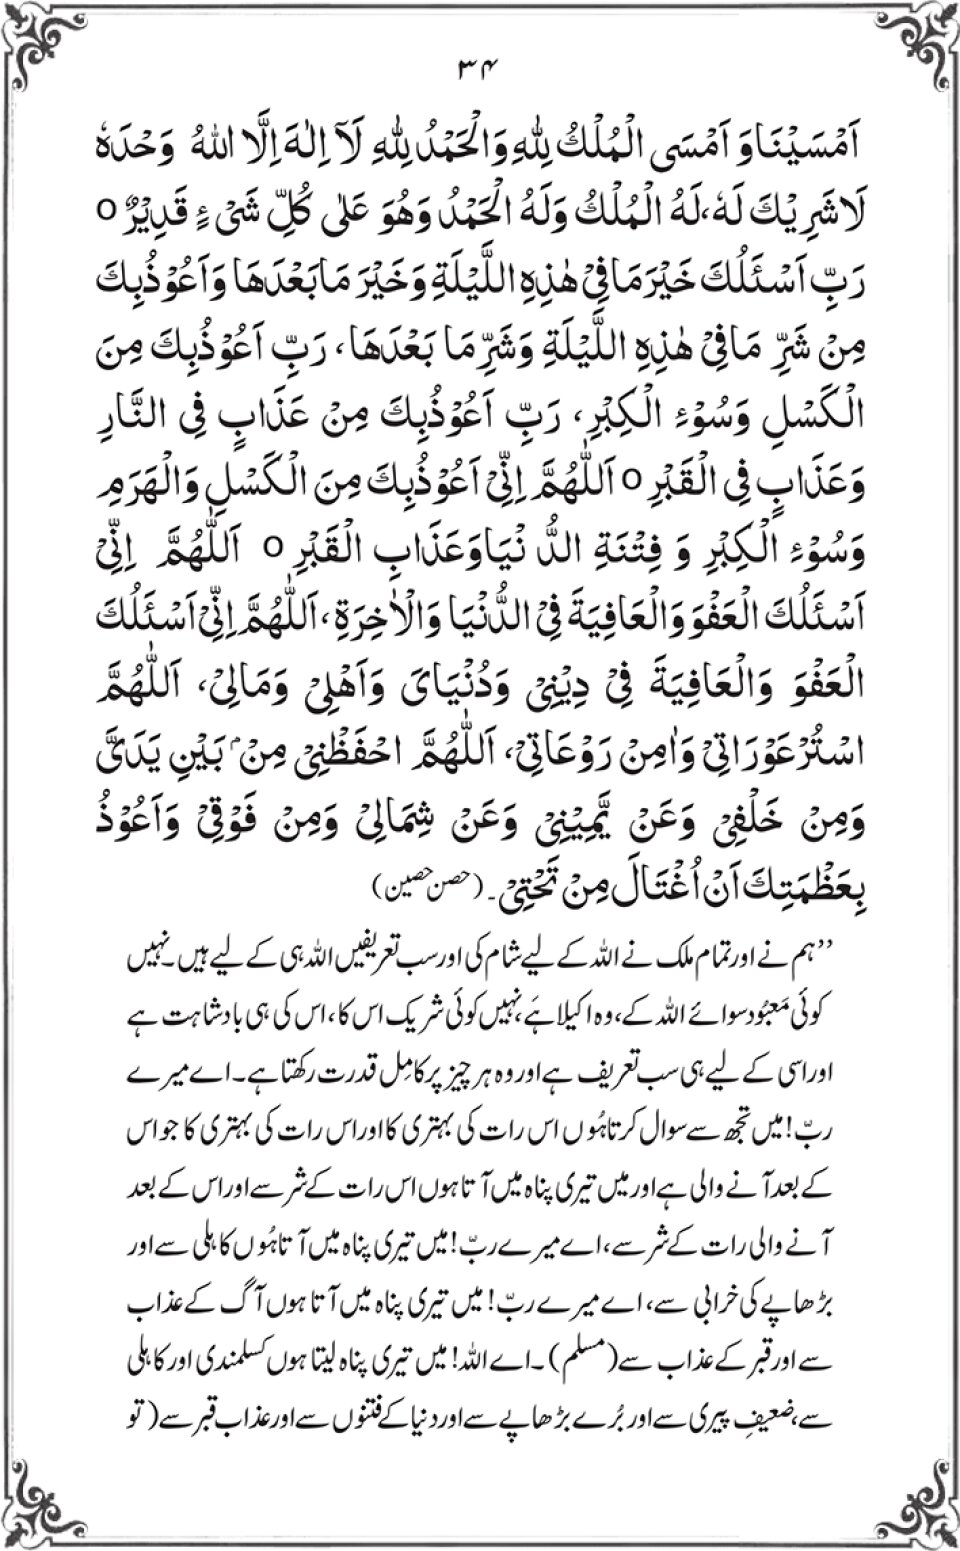 ۳۴
اَمْسَيْنَا وَ اَمْسَى الْمُلْكُ لِلّٰهِ وَالْحَمْدُ لِلّٰهِ لَآ اِلٰهَ اِلَّا اللّٰهُ وَحْدَهٗ
لَا شَرِيْكَ لَهٗ، لَهُ الْمُلْكُ وَلَهُ الْحَمْدُ وَهُوَ عَلٰى كُلِّ شَىْءٍ قَدِيْرٌ o
رَبِّ اَسْئَلُكَ خَيْرَ مَا فِىْ هٰذِهِ اللَّيْلَةِ وَخَيْرَ مَا بَعْدَهَا وَاَعُوْذُبِكَ
مِنْ شَرِّ مَا فِىْ هٰذِهِ اللَّيْلَةِ وَشَرِّ مَا بَعْدَهَا، رَبِّ اَعُوْذُبِكَ مِنَ
الْكَسْلِ وَسُوْءِ الْكِبْرِ، رَبِّ اَعُوْذُبِكَ مِنْ عَذَابٍ فِى النَّارِ
وَعَذَابٍ فِى الْقَبْرِ o اَللّٰهُمَّ اِنِّىْ اَعُوْذُبِكَ مِنَ الْكَسْلِ وَالْهَرَمِ
وَسُوْءِ الْكِبْرِ وَ فِتْنَةِ الدُّ نْيَا وَعَذَابِ الْقَبْرِ o اَللّٰهُمَّ اِنِّىْ
اَسْئَلُكَ الْعَفْوَ وَالْعَافِيَةَ فِى الدُّنْيَا وَالْاٰخِرَةِ، اَللّٰهُمَّ اِنِّىْ اَسْئَلُكَ
الْعَفْوَ وَالْعَافِيَةَ فِىْ دِيْنِىْ وَدُنْيَاىَ وَاَهْلِىْ وَمَالِىْ، اَللّٰهُمَّ
اسْتُرْ عَوْرَاتِىْ وَاٰمِنْ رَوْعَاتِىْ، اَللّٰهُمَّ احْفَظْنِىْ مِنْۢ بَيْنِ يَدَىَّ
وَمِنْ خَلْفِىْ وَعَنْ يَّمِيْنِىْ وَعَنْ شِمَالِىْ وَمِنْ فَوْقِىْ وَاَعُوْذُ
بِعَظْمَتِكَ اَنْ اُغْتَالَ مِنْ تَحْتِىْ۔ (حصن حصین)
’’ہم نے اور تمام ملک نے اللہ کے لیے شام کی اور سب تعریفیں اللہ ہی کے لیے ہیں۔ نہیں
کوئی مَعبُود سوائے اللہ کے، وہ اکیلا ہے، نہیں کوئی شریک اس کا، اس کی ہی بادشاہت ہے
اور اسی کے لیے ہی سب تعریف ہے اور وہ ہر چیز پر کامِل قدرت رکھتا ہے۔ اے میرے
ربّ! میں تجھ سے سوال کرتا ہُوں اس رات کی بہتری کا اور اس رات کی بہتری کا جو اس
کے بعد آنے والی ہے اور میں تیری پناہ میں آتا ہوں اس رات کے شر سے اور اس کے بعد
آنے والی رات کے شر سے، اے میرے ربّ! میں تیری پناہ میں آتا ہُوں کاہلی سے اور
بڑھاپے کی خرابی سے، اے میرے ربّ! میں تیری پناہ میں آتا ہوں آگ کے عذاب
سے اور قبر کے عذاب سے (مسلم)۔ اے اللہ! میں تیری پناہ لیتا ہوں کسلمندی اور کاہلی
سے، ضعیفِ پیری سے اور بُرے بڑھاپے سے اور دنیا کے فتنوں سے اور عذاب قبر سے (تو